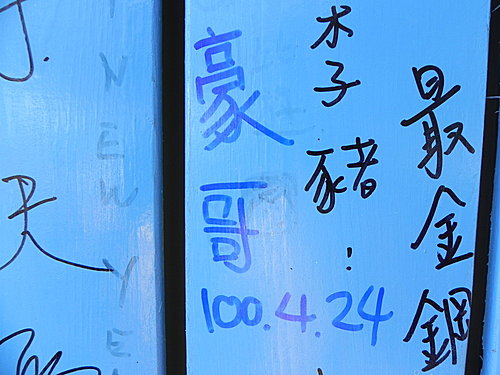 豪哥
100.4.24
木子
豬
最金鋼
天
NEW YE